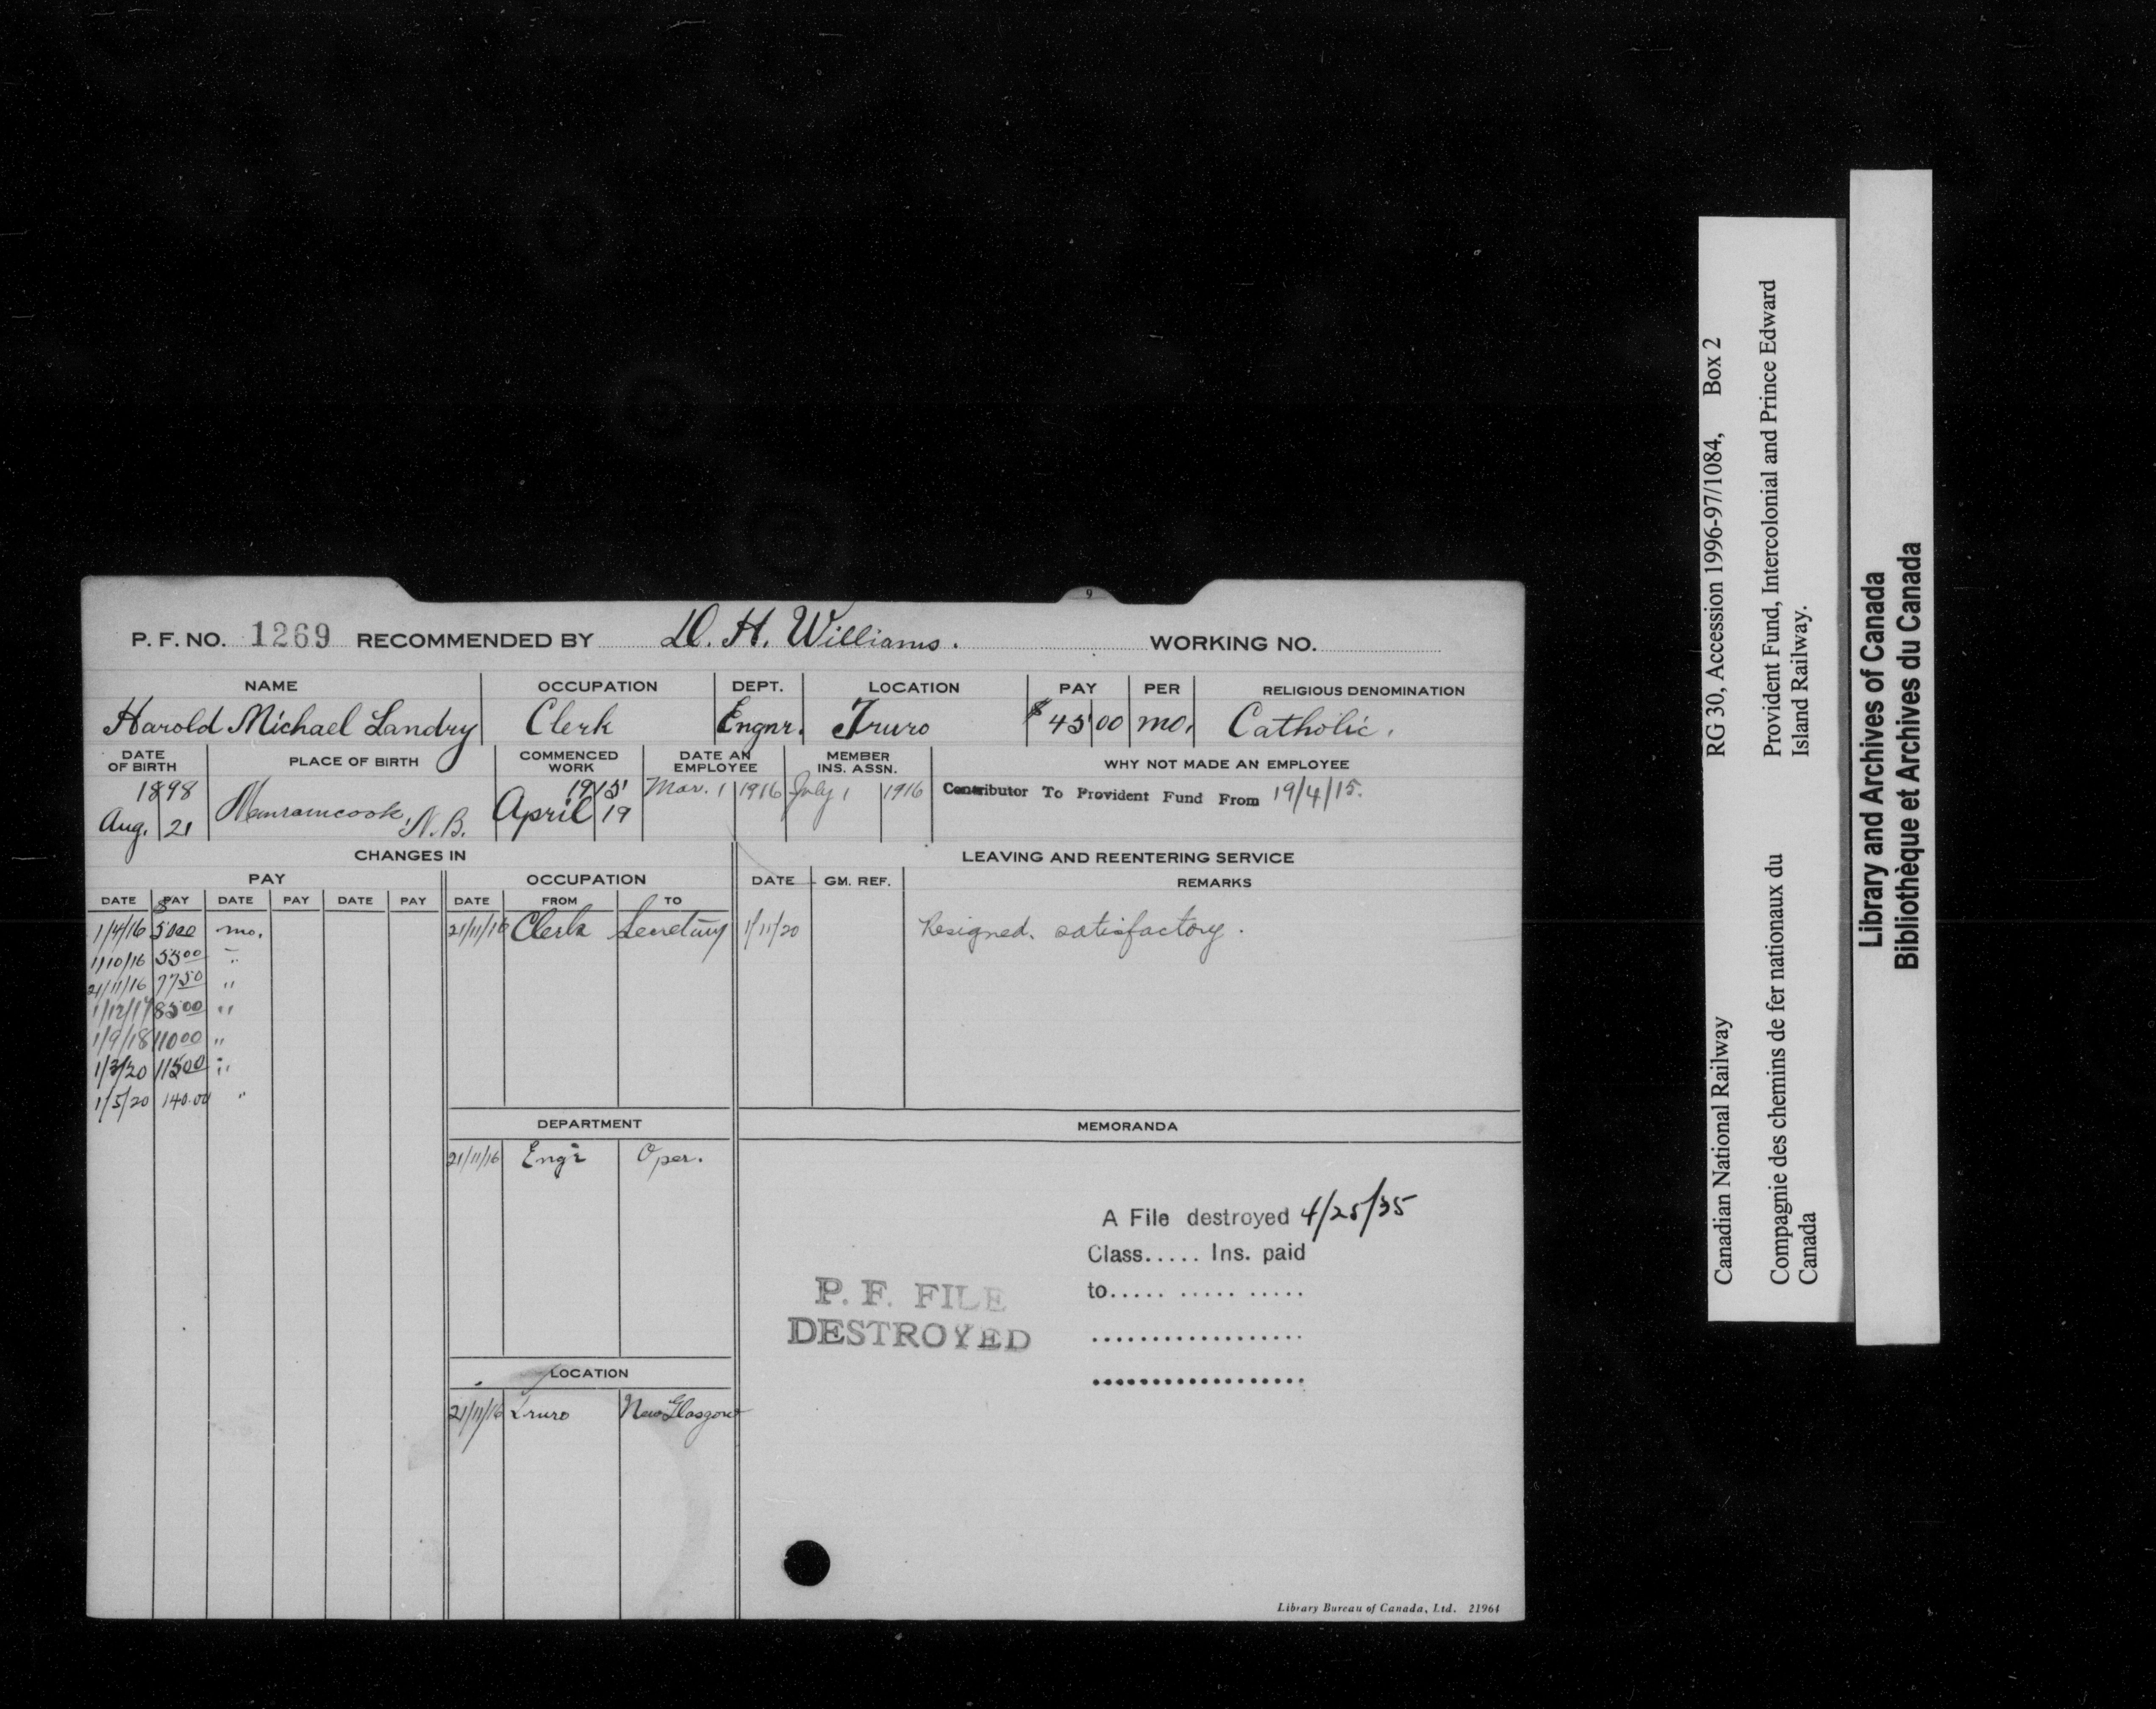 P. F. NO. 1269 RECOMMENDED BY D. H. Williams. WORKING NO.
NAME OCCUPATION DEPT. LOCATION PAY PER RELIGIOUS DENOMINATION
Harold Michael Landry Clerk Engnr. Truro $45 00 mo. Catholic.
DATE OF BIRTH PLACE OF BIRTH COMMENCED WORK DATE AN EMPLOYEE MEMBER INS. ASSN. WHY NOT MADE AN EMPLOYEE
1898 Aug. 21 Memramcook, N.B. 1915 April 19 Mar. 1 1916 July 1 1916 Contributor To Provident Fund From 19/4/15.
CHANGES IN LEAVING AND REENTERING SERVICE
PAY OCCUPATION DATE GM. REF. REMARKS
DATE PAY DATE PAY DATE PAY DATE FROM TO
1/4/16 $5000 mo. 21/11/16 Clerk Secretary 1/11/20 Resigned. satisfactory.
1/10/16 5500 "
21/11/16 7750 "
1/12/17 8500 "
1/9/18 11000 "
1/3/20 11500 "
1/5/20 140.00 "
DEPARTMENT
21/11/16 Engr Oper.
LOCATION
21/11/16 Truro New Glasgow
MEMORANDA
A File destroyed 4/25/35
Class..... Ins. paid
to..... ..... .....
..................
..................
P. F. FILE
DESTROYED
Library Bureau of Canada, Ltd. 21964
9
RG 30, Accession 1996-97/1084, Box 2
Provident Fund, Intercolonial and Prince Edward
Island Railway.
Canadian National Railway
Compagnie des chemins de fer nationaux du
Canada
Library and Archives of Canada
Bibliothèque et Archives du Canada